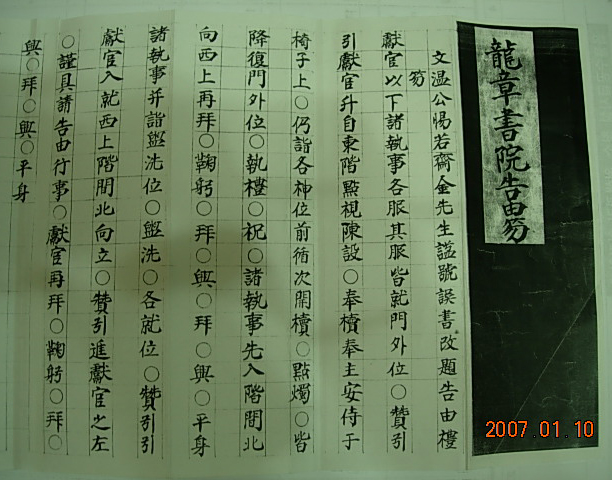 龍章書院告由笏
文温公惕若齋金先生諡號誤書改題告由禮
笏
獻官以下諸執事各服其服皆就門外位○贊引
引獻官升自東階點視陳設○奉櫝奉主安侍于
椅子上○仍詣各神位前循次開櫝○點燭○皆
降復門外位○執禮○祝○諸執事先入階間北
向西上再拜○鞠躬○拜○興○拜○興○平身
諸執事并詣盥洗位○盥洗○各就位○贊引引
獻官入就西上階間北向立○贊引進獻官之左
○謹具請告由行事○獻官再拜○鞠躬○拜○
興○拜○興○平身
2007.01.10